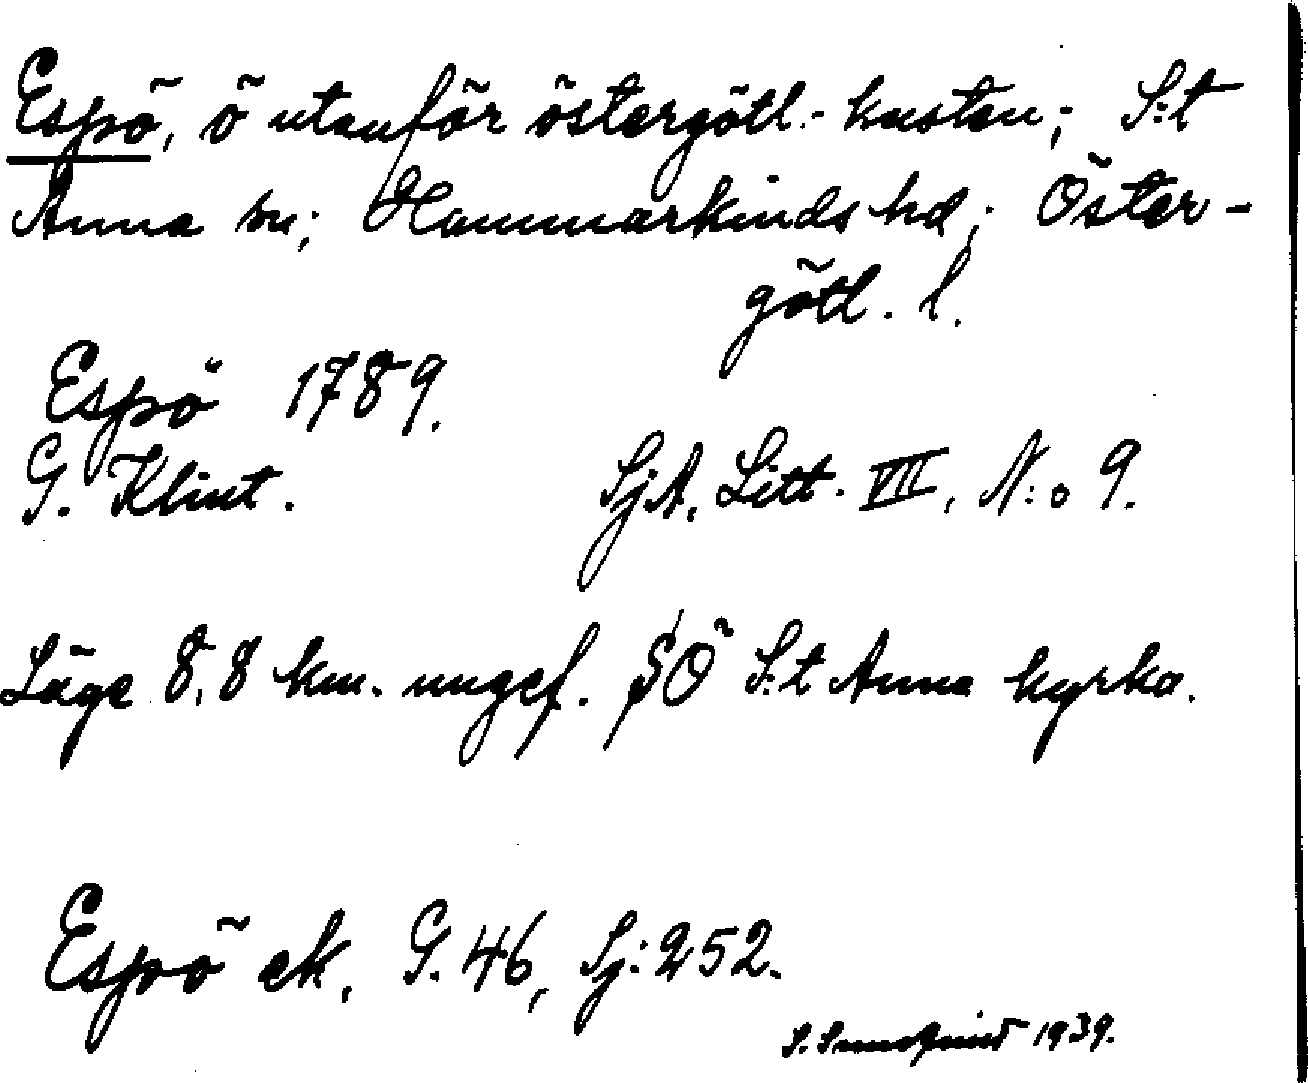 Espö, ö utanför östergötl.- kusten; S:t
Anna sn; Hammarkinds hd; Öster-
götl. l.
Espö 1789.
G. Klint. SjA, Litt. VII, N:o 9.
Läge 8,8 km. ungef. SÖ S:t Anna kyrka.
Espö ek, G. 46, Sj: 252.
S. Sundqvist 1939.